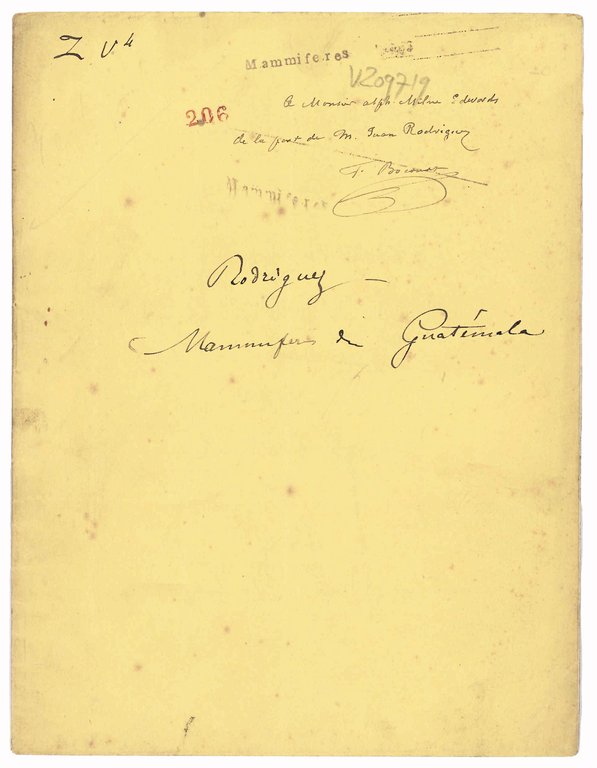 Z V 4
Mammiferes
VZ09719
206
A Monsieur Alph. Milne Edwards
de la part de M. Juan Rodriguez
F. Bocourt
Rodriguez —
Mammiferes de Guatémala